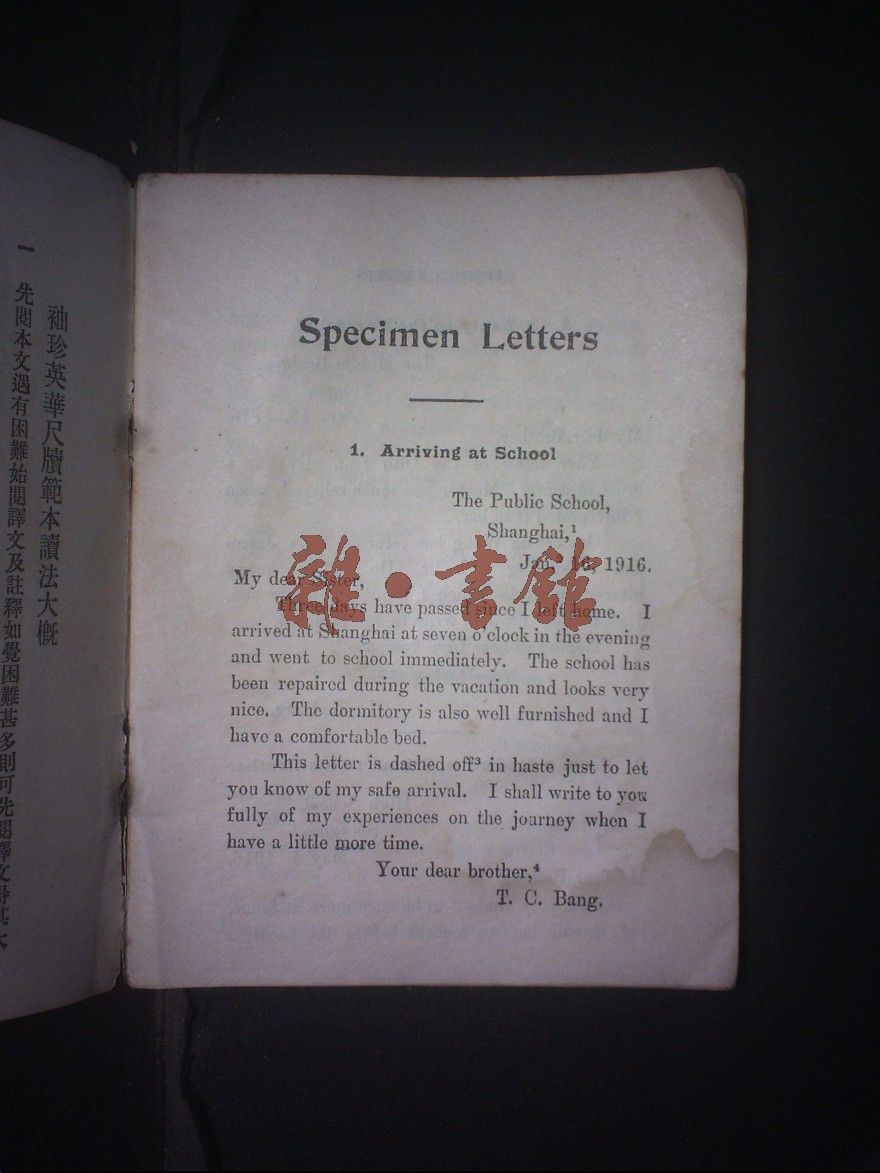 袖珍英華尺牘範本讀法大概
一 先閱本文遇有困難始閱譯文及註釋如覺困難甚多則可先閱譯文得其大
Specimen Letters
1. Arriving at School
The Public School,
Shanghai,¹
Jan. 16, 1916.
My dear Sister,
Three days have passed since I left home. I
arrived at Shanghai at seven o'clock in the evening
and went to school immediately. The school has
been repaired during the vacation and looks very
nice. The dormitory is also well furnished and I
have a comfortable bed.
This letter is dashed off³ in haste just to let
you know of my safe arrival. I shall write to you
fully of my experiences on the journey when I
have a little more time.
Your dear brother,⁴
T. C. Bang.
雜·書館